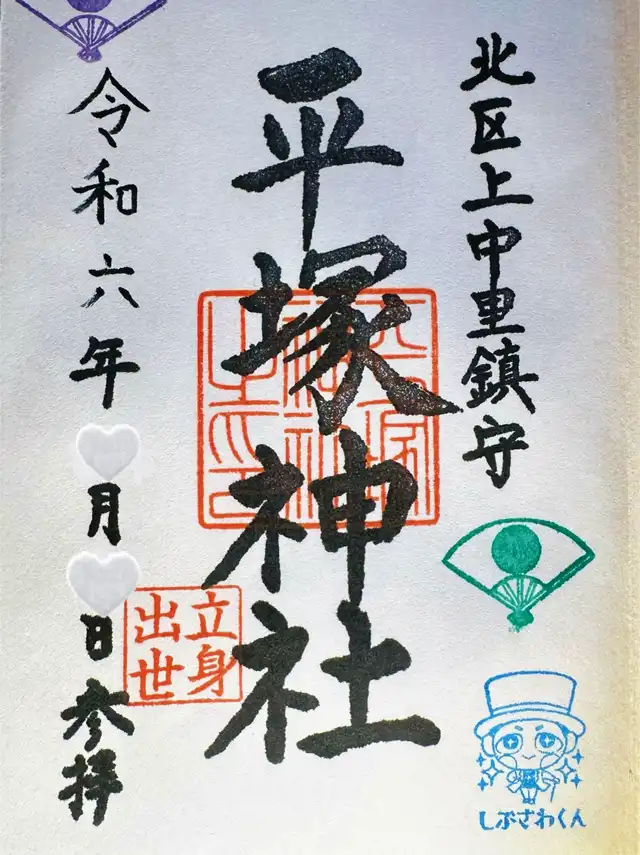 北区上中里鎮守
平塚神社
立身
出世
令和六年
月
日参拝
しぶさわくん